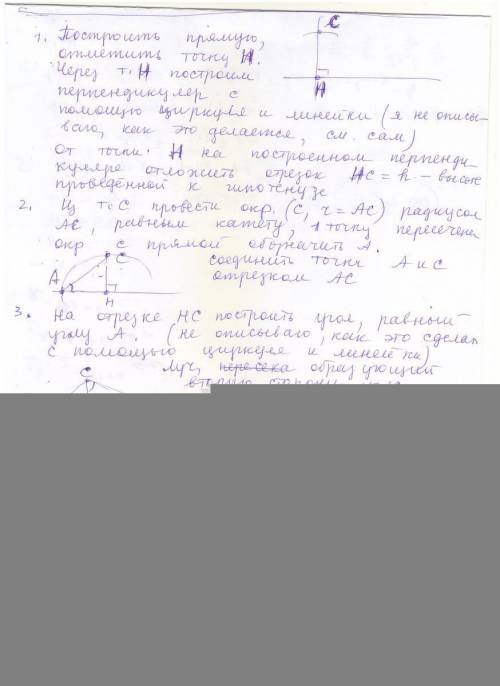 1. Построить прямую,
отметить точку H.
Через т. H построим
перпендикуляр с
помощью циркуля и линейки (я не описы-
ваю, как это делается, см. сам)
От точки H на построенном перпенди-
куляре отложить отрезок HC = h - высоте
проведённой к гипотенузе
C
H
2. Из т. C провести окр. (C, r = AC) радиусом
AC, равным катету, 1 точку пересечения
окр с прямой обозначить A.
соединить точки A и C
отрезком AC
C
A
H
3. На отрезке HC построить угол, равный
углу A. (не описываю, как это сделать
с помощью циркуля и линейки)
Луч, образующий
вторую сторону
C